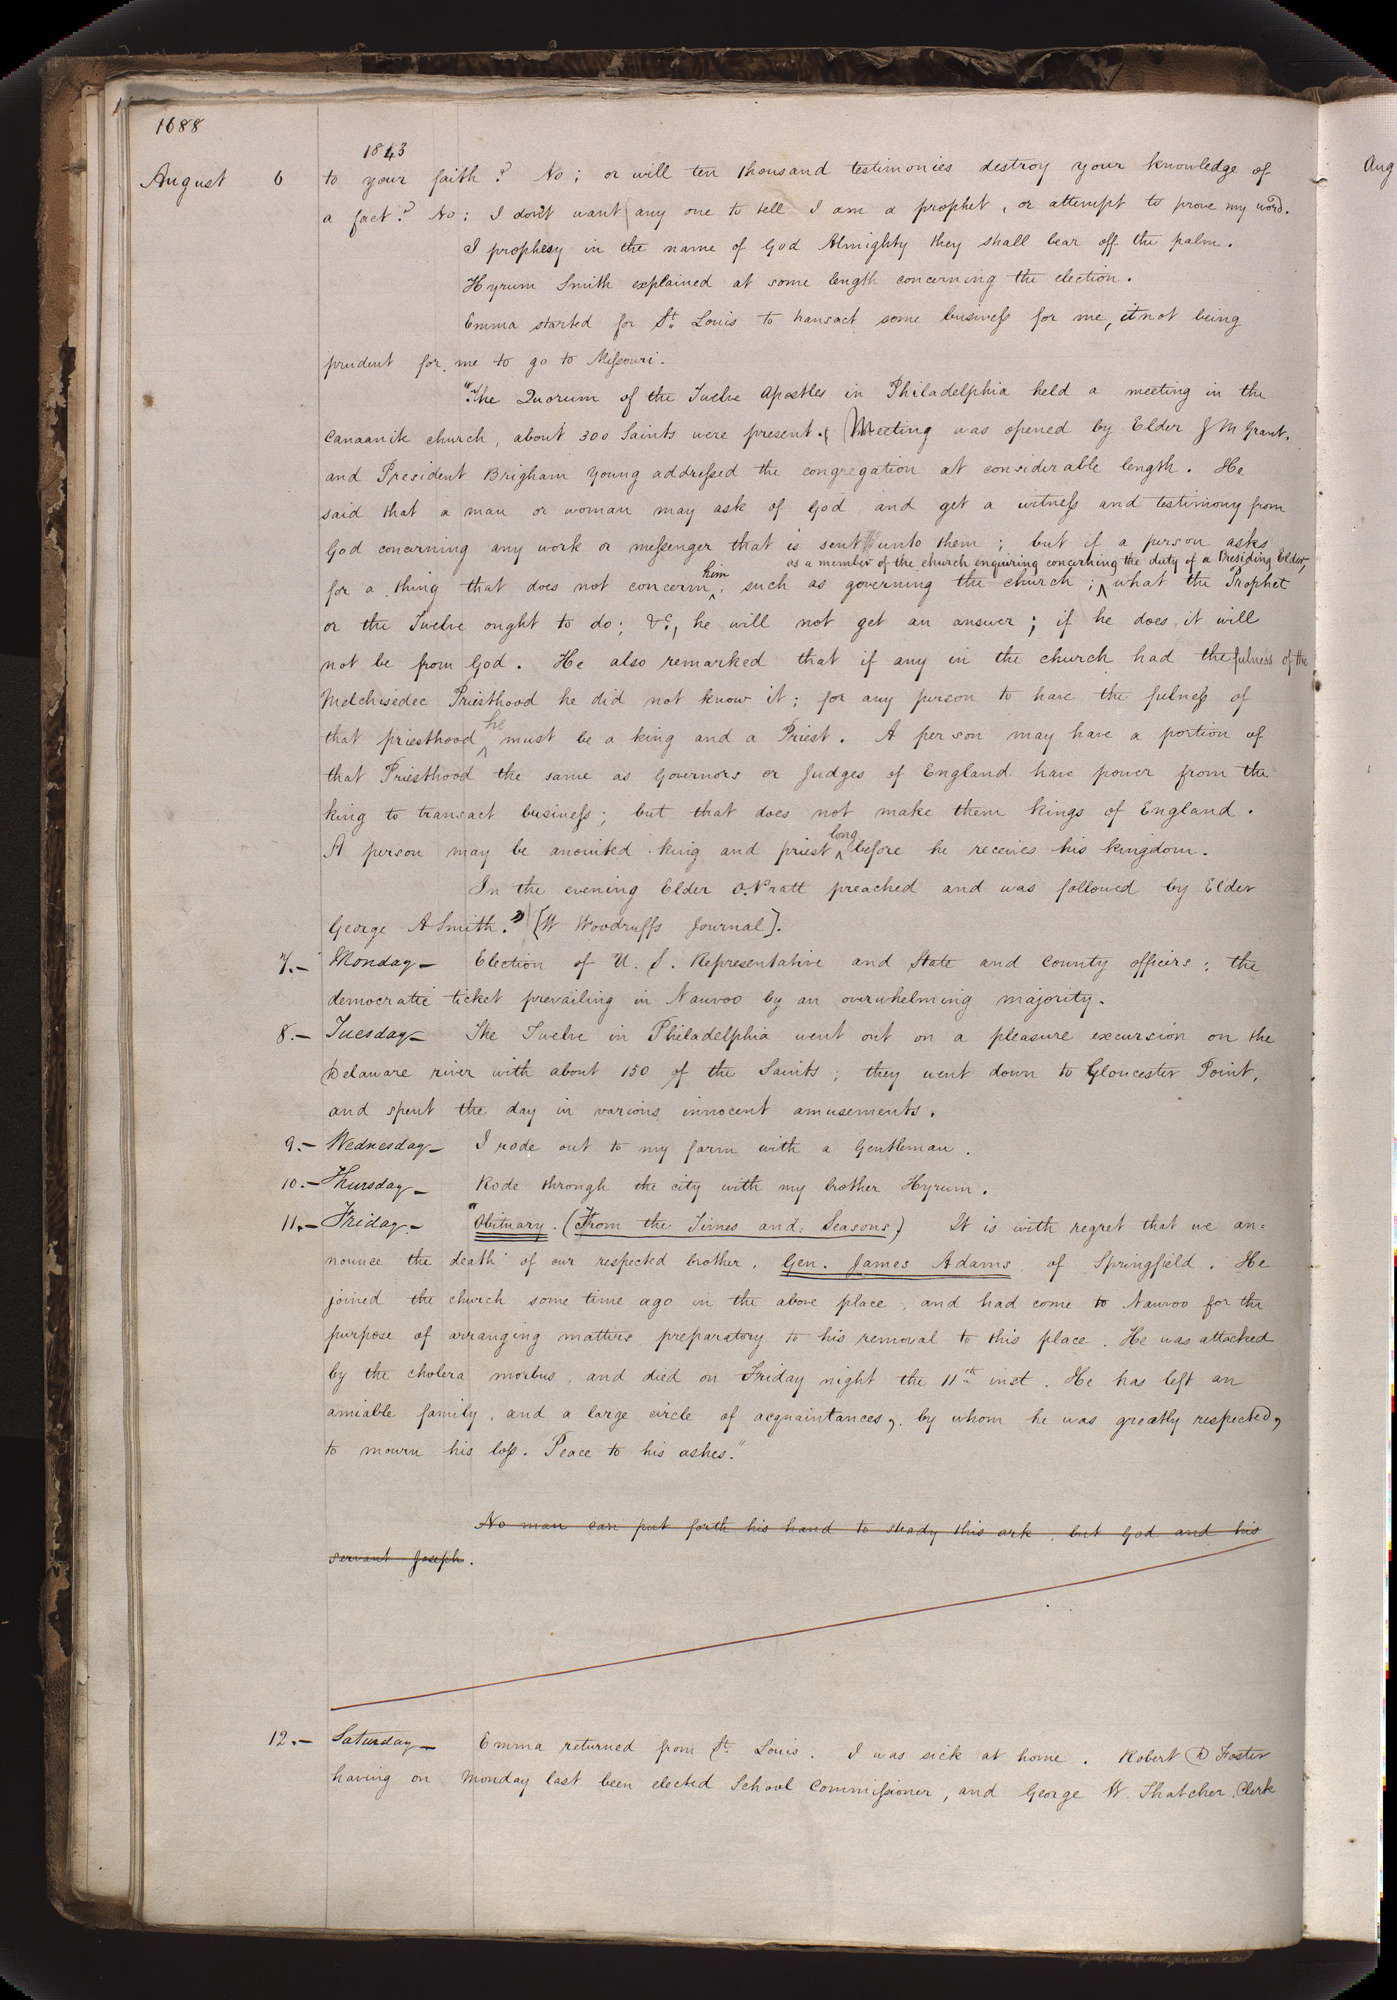 1688
1843
August 6 to your faith? No; or will ten thousand testimonies destroy your knowledge of
a fact? No; I don't want any one to tell I am a prophet, or attempt to prove my word.
I prophesy in the name of God Almighty they shall bear off the palm.
Hyrum Smith explained at some length concerning the election.
Emma started for St. Louis to transact some business for me, it not being
prudent for me to go to Missouri.
"The Quorum of the Twelve Apostles in Philadelphia held a meeting in the
Canaanite church, about 300 Saints were present. Meeting was opened by Elder J M Grant,
and President Brigham Young addressed the congregation at considerable length. He
said that a man or woman may ask of God and get a witness and testimony from
God concerning any work or messenger that is sent unto them; but if a person asks
as a member of the church enquiring concerning the duty of a Presiding Elder,
for a thing that does not concern him, such as governing the church; ^ what the Prophet
or the Twelve ought to do; &c, he will not get an answer; if he does, it will
not be from God. He also remarked that if any in the church had the fulness of the
Melchisedec Priesthood he did not know it; for any person to have the fulness of
that priesthood ^he must be a king and a Priest. A person may have a portion of
that Priesthood the same as Governors or Judges of England have power from the
king to transact business; but that does not make them kings of England.
A person may be anointed king and priest ^long before he receives his kingdom.
In the evening Elder O. Pratt preached and was followed by Elder
George A Smith." [W Woodruffs Journal].
7.— Monday— Election of U. S. Representative and State and County officers; the
democratic ticket prevailing in Nauvoo by an overwhelming majority.
8.— Tuesday— The Twelve in Philadelphia went out on a pleasure excursion on the
Delaware river with about 150 of the Saints; they went down to Gloucester Point,
and spent the day in various innocent amusements.
9.— Wednesday— I rode out to my farm with a Gentleman.
10.— Thursday— Rode through the city with my brother Hyrum.
11.— Friday— "Obituary. (From the Times and Seasons) It is with regret that we an=
nounce the death of our respected brother, Gen. James Adams, of Springfield. He
joined the church some time ago in the above place, and had come to Nauvoo for the
purpose of arranging matters preparatory to his removal to this place. He was attacked
by the cholera morbus, and died on Friday night the 11th inst. He has left an
amiable family, and a large circle of acquaintances, by whom he was greatly respected,
to mourn his loss. Peace to his ashes."
No man can put forth his hand to steady this ark, but God and his
servant Joseph.
12.— Saturday— Emma returned from St. Louis. I was sick at home. Robert D Foster
having on Monday last been elected School Commissioner, and George W. Thatcher, Clerk
Aug